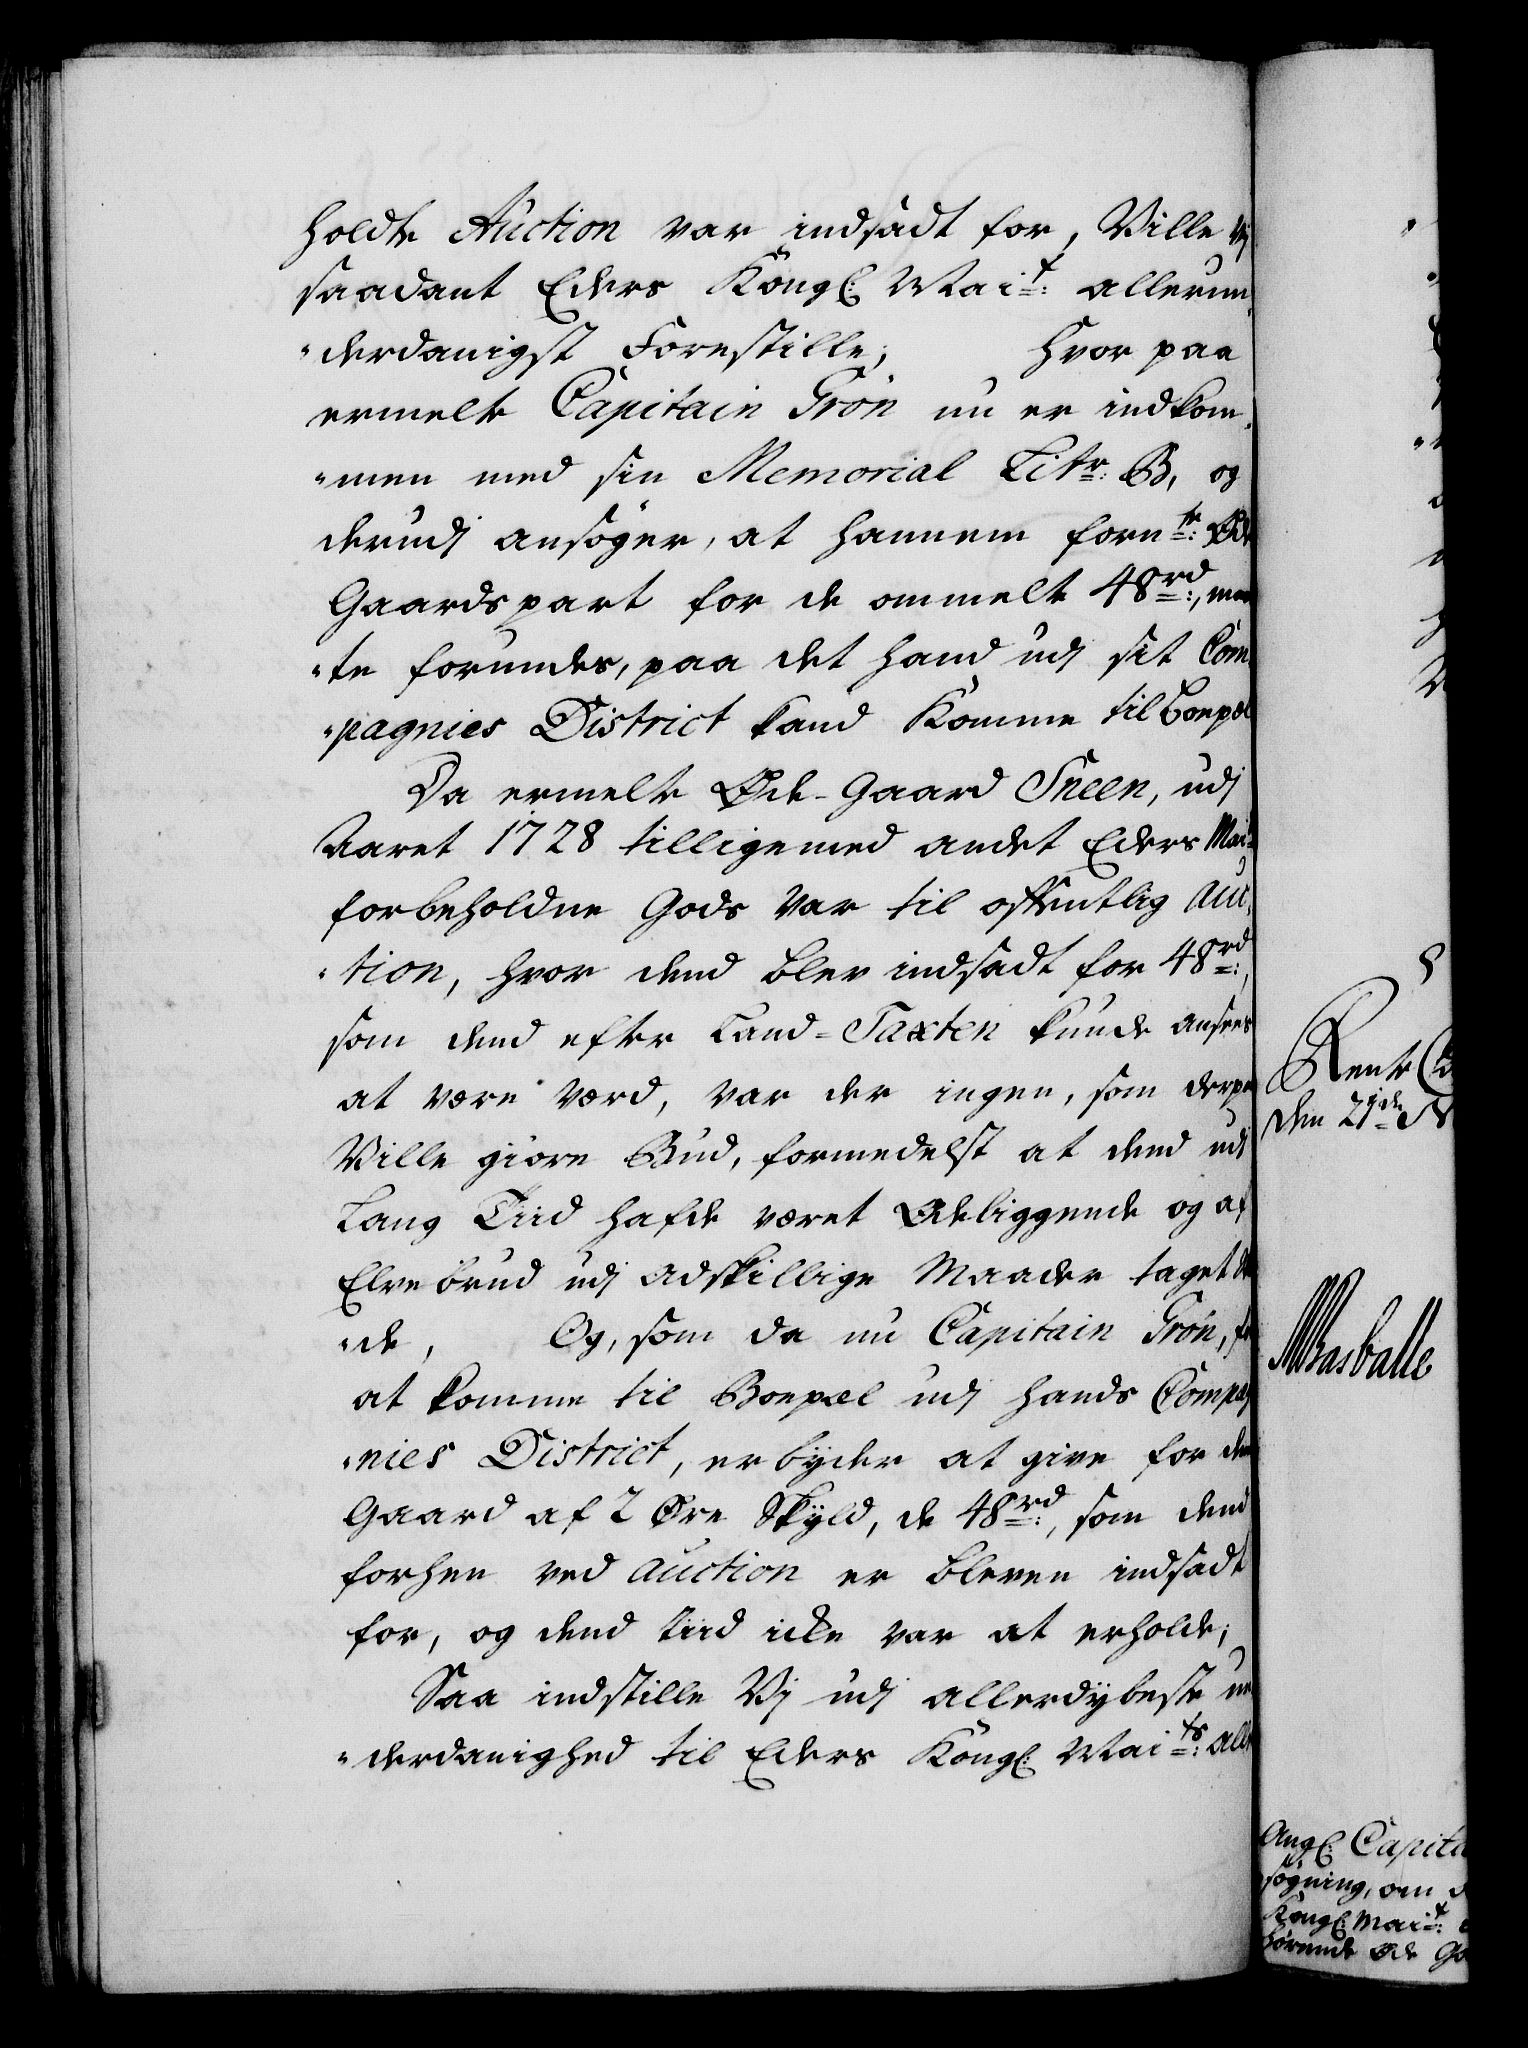 holdte Auction var indsadt for, Ville Vi
saadant Eders Kongl: Mai:t: allerun„
„derdanigst Forestille; Hvor paa
ermelte Capitain Grøn nu er indkom„
„men med sin Memorial Litr: B, og
derudj ansøger, at hannem forn:te: Øde
Gaardspart for de ommelte 48 rd:, maa„
„te forundes, paa det hand udj sit Com„
„pagnies District kand komme til Boepæl
Da ermelte Øde-Gaard Sneen, udj
Aaret 1728 tilligemed andet Eders Mai:t:
forbeholdne Gods var til offentlig Auc„
„tion, hvor dend blev indsadt for 48 rd:,
som dend efter Land-Taxten kunde ansees
at være værd, var der ingen, som derpaa
Ville giøre Bud, formedelst at dend udi
Lang Tiid hafde været Ødeliggende og af
Elvebrud udj adskillige Maader taget Ska„
„de, Og, som da nu Capitain Grøn, for
at komme til Boepæl udj hands Compag„
„nies District, erbyder at give for den
Gaard af 2 Øre Skyld, de 48 rd:, som dend
forhen ved Auction er bleven indsadt
for, og dend Tiid icke var at erholde;
Saa indstille Vj udj allerdybeste un„
„derdanighed til Eders Kongl: Mai:ts: aller
Rente Ca
den 21de N
Basballe
Angl: Capita
søgning, om d
Kongl: Mai:t:
hørende Øde Ga